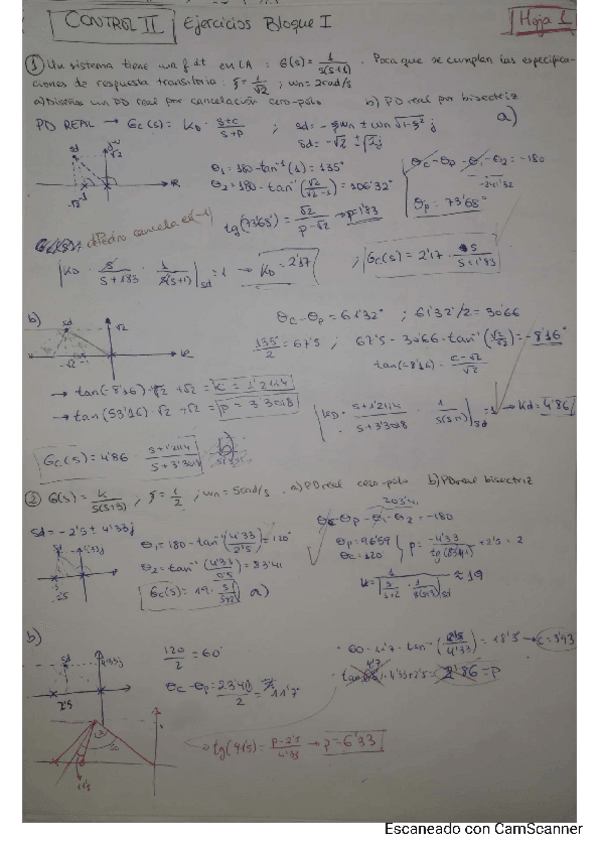 CONTROL II Ejercicios Bloque I Hoja 1
① Un sistema tiene una f dt en LA: G(s) = 1/s(s+1). Para que se cumplan las especifica-
ciones de respuesta transitoria: ζ = 1/√2 ; wn = 2rad/s
a) Diseñar un PD real por cancelación cero-polo b) PD real por bisectriz
PD REAL → Gc(s) = KD · s+c/s+p ; sd = -ζwn ± wn√1-ζ² j a)
sd = -√2 ± √2 j
θ1 = 180 - tan⁻¹(1) = 135°
θ2 = 180 - tan⁻¹(√2/√2-1) = 106'32°
θc - θp - θ1 - θ2 = -180
-241'32
θp = 73'68°
tg(73'68) = √2/p-√2 → p = 1'83
|KD · s/s+1'83 · 1/s(s+1)|sd = 1 → KD = 2'17 ; Gc(s) = 2'17 · s/s+1'83
b)
sd √2
-√2 -1
θc - θp = 61'32° ; 61'32/2 = 30'66
135°/2 = 67'5 ; 67'5 - 30'66 - tan⁻¹(√2/√2) = -8'16°
tan(-8'16) = c-√2/√2
→ tan(-8'16) · √2 + √2 = c = 1'2114
→ tan(53'16) √2 + √2 = p = 3'3018
|KD · s+1'2114/s+3'3018 · 1/s(s+1)|sd = 1 → Kd = 4'86
Gc(s) = 4'86 s+1'2114/s+3'3018 b)
② G(s) = k/s(s+3) ; ζ = 1/2 ; wn = 5rad/s. a) PD real cero-polo b) PD real bisectriz
sd = -2'5 ± 4'33j
θ1 = 180 - tan⁻¹(4'33/2'5) = 120°
θ2 = tan⁻¹(4'33/0'5) = 83'41
203'41
θc - θp - θ1 - θ2 = -180
θp = 96'59
θc = 120
p = -4'33/tg(83'41) + 2'5 = 2
≈ 19
a)
b)
sd 4'33j
2'5
120/2 = 60°
θc - θp = 23'41/2 = 11'7°
= 18'3 → c = 3'93
2'86 = p
→ tg(41'5) = p-2'5/4'33 → p = 6'33
Escaneado con CamScanner